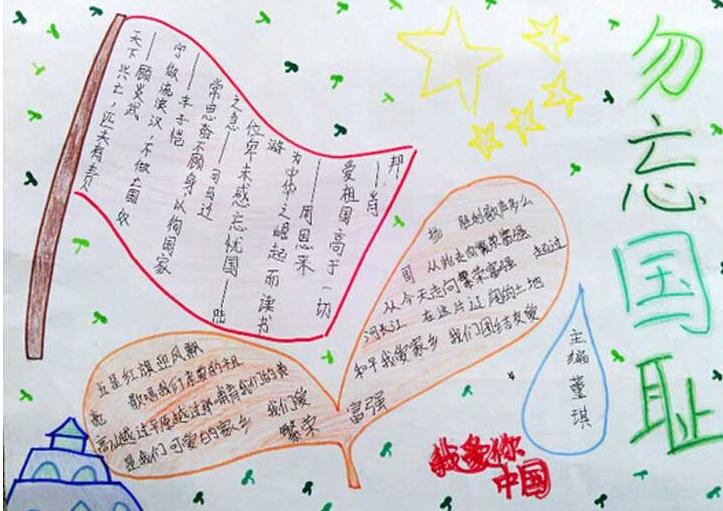 勿忘国耻
天下兴亡，匹夫有责
——顾炎武
宁做流浪汉，不做亡国奴
——丰子恺
常思奋不顾身，以徇国家
之急——司马迁
位卑未感忘忧国——陆
游
为中华之崛起而读书
——周恩来
爱祖国高于一切
——肖
邦
五星红旗迎风飘
歌唱我们亲爱的祖
高山越过平原越过
是我们可爱的家乡 我们爱
繁荣 富强
扬 胜利歌声多么
国 从此走向繁荣富强
从今天走向繁荣富强 越过
河长江 在这片辽阔的土地
和平我爱家乡 我们团结友爱
主编 董琪
我爱你
中国